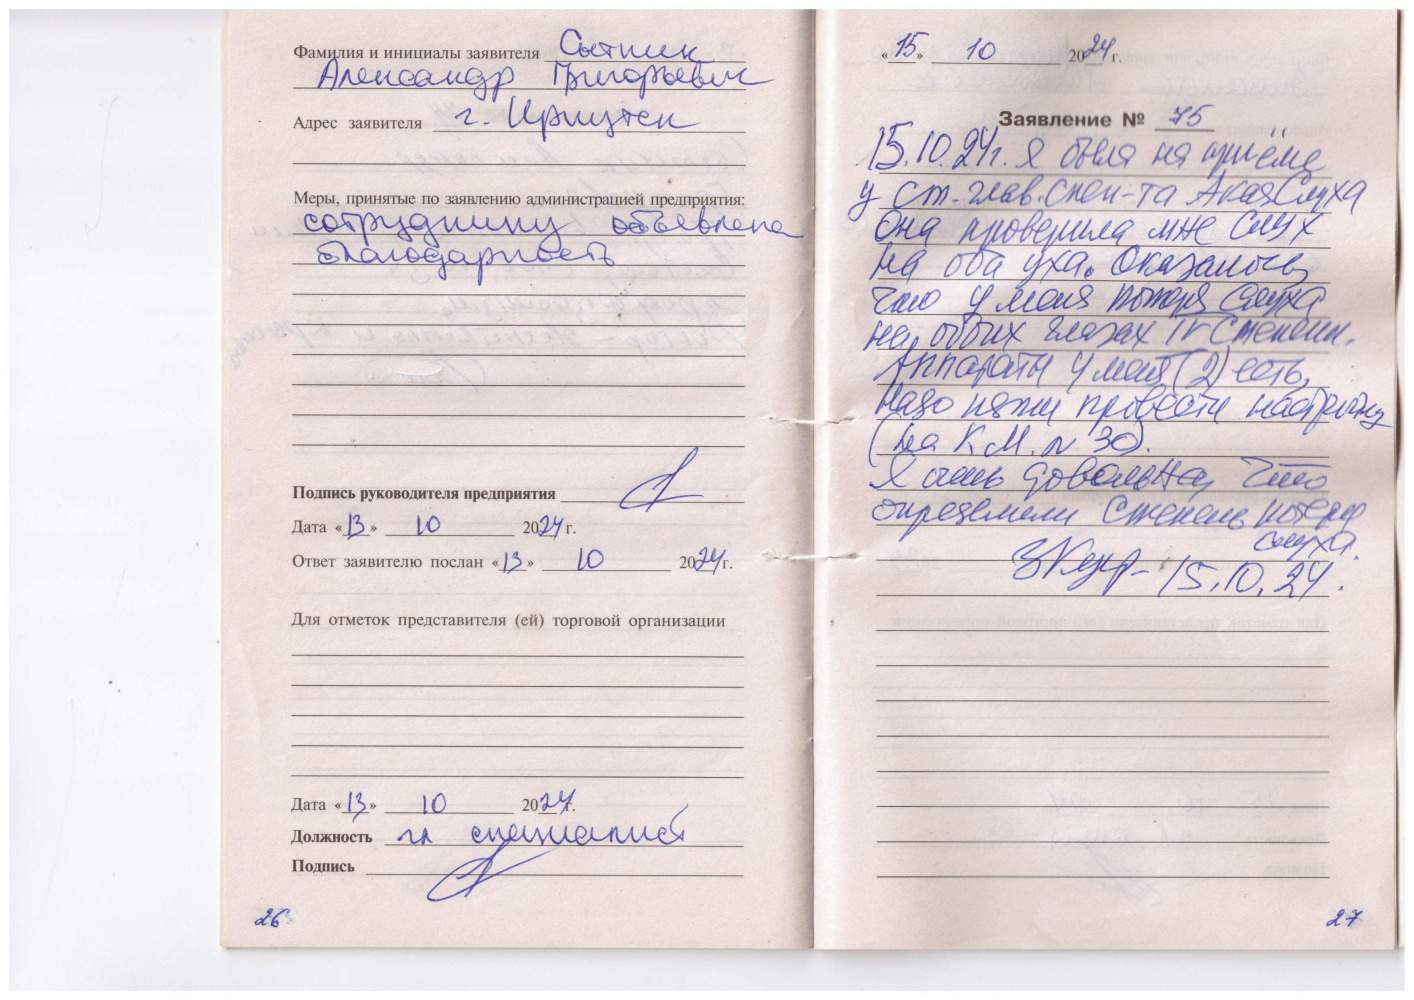 Фамилия и инициалы заявителя Сытник
Александр Григорьевич
Адрес заявителя г. Иркутск
Меры, принятые по заявлению администрацией предприятия:
сотруднику объявлена
благодарность
Подпись руководителя предприятия
Дата «13» 10 2024г.
Ответ заявителю послан «13» 10 2024г.
Для отметок представителя (ей) торговой организации
Дата «13» 10 2024г.
Должность гл специалист
Подпись
26
«15» 10 2024 г.
Заявление № 75
15.10.24г. я была на приёме
у ст. глав. спец-та АкадСлуха
Она проверила мне слух
на оба уха. Оказалось,
что у меня потеря слуха
на обоих глазах IV степени.
Аппараты у меня (2) есть,
надо провести настройку
(на К.М. N 30).
Я очень довольна, что
определили степень потери
слуха.
15.10.24.
27